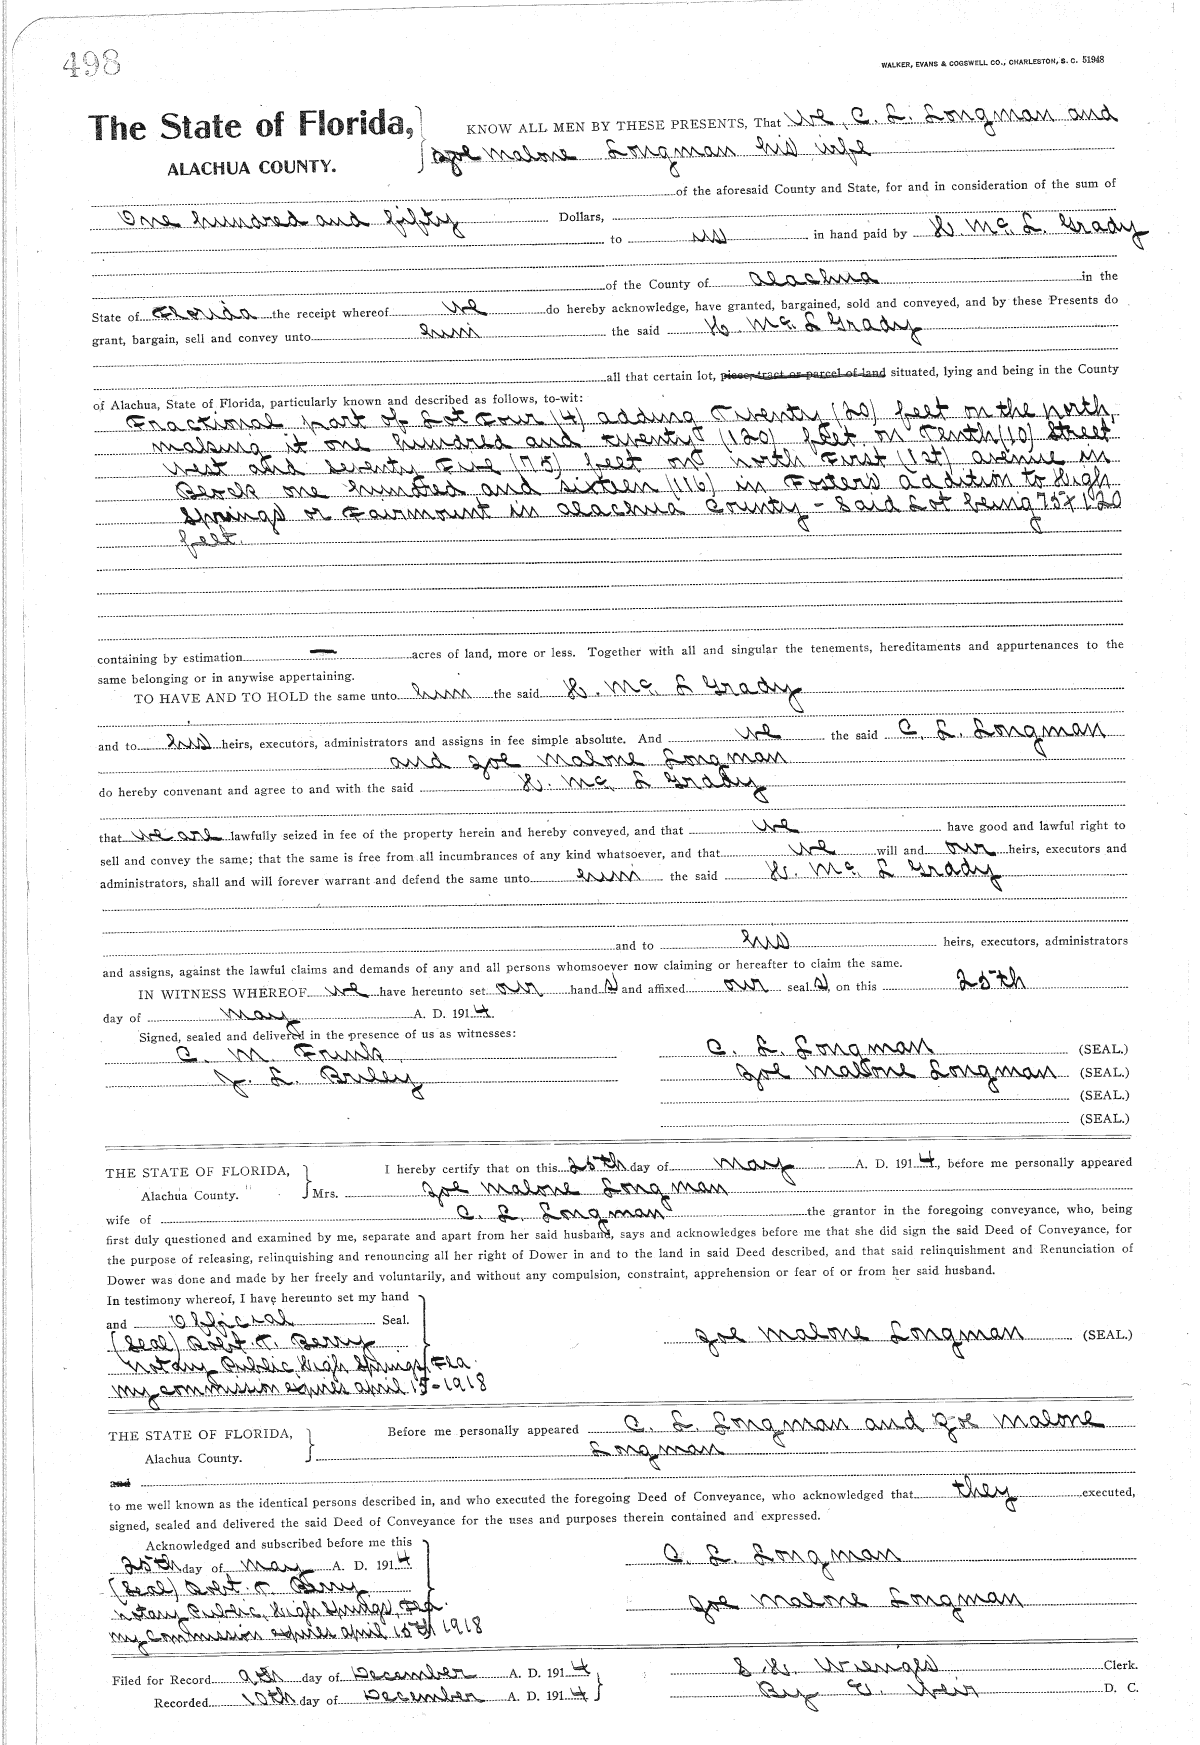 498
WALKER, EVANS & COGSWELL CO., CHARLESTON, S. C. 51948
The State of Florida,
ALACHUA COUNTY.
KNOW ALL MEN BY THESE PRESENTS, That We, C. L. Longman and
Zoe Malone Longman his wife
of the aforesaid County and State, for and in consideration of the sum of
One hundred and fifty Dollars,
to us in hand paid by H. Mc. L. Grady
of the County of Alachua in the
State of Florida the receipt whereof we do hereby acknowledge, have granted, bargained, sold and conveyed, and by these Presents do
grant, bargain, sell and convey unto him the said H. Mc. L Grady
all that certain lot, piece, tract or parcel of land situated, lying and being in the County
of Alachua, State of Florida, particularly known and described as follows, to-wit:
Fractional part of Lot Four (4) adding Twenty (20) feet on the north,
making it one hundred and twenty (120) feet on Tenth (10) Street
West and seventy Five (75) feet on north First (1st) avenue in
Block one hundred and sixteen (116) in Fosters addition to High
Springs or Fairmount in Alachua County - Said Lot being 75 x 120
feet.
containing by estimation — acres of land, more or less. Together with all and singular the tenements, hereditaments and appurtenances to the
same belonging or in anywise appertaining.
TO HAVE AND TO HOLD the same unto him the said H. Mc. L Grady
and to his heirs, executors, administrators and assigns in fee simple absolute. And we the said C. L. Longman
and Zoe Malone Longman
do hereby convenant and agree to and with the said H. Mc. L Grady
that we are lawfully seized in fee of the property herein and hereby conveyed, and that we have good and lawful right to
sell and convey the same; that the same is free from all incumbrances of any kind whatsoever, and that we will and our heirs, executors and
administrators, shall and will forever warrant and defend the same unto him the said H. Mc. L Grady
and to his heirs, executors, administrators
and assigns, against the lawful claims and demands of any and all persons whomsoever now claiming or hereafter to claim the same.
IN WITNESS WHEREOF we have hereunto set our hand s and affixed our seal s, on this 25th
day of May A. D. 1914.
Signed, sealed and delivered in the presence of us as witnesses:
C. M. Frink
J. L. Briley
C. L. Longman (SEAL.)
Zoe Malone Longman (SEAL.)
(SEAL.)
(SEAL.)
THE STATE OF FLORIDA,
Alachua County.
I hereby certify that on this 25th day of May A. D. 1914, before me personally appeared
Mrs. Zoe Malone Longman
wife of C. L. Longman the grantor in the foregoing conveyance, who, being
first duly questioned and examined by me, separate and apart from her said husband, says and acknowledges before me that she did sign the said Deed of Conveyance, for
the purpose of releasing, relinquishing and renouncing all her right of Dower in and to the land in said Deed described, and that said relinquishment and Renunciation of
Dower was done and made by her freely and voluntarily, and without any compulsion, constraint, apprehension or fear of or from her said husband.
In testimony whereof, I have hereunto set my hand
and Official Seal.
(Seal) Robt. T. Berry
Notary Public, High Springs, Fla.
My commission expires April 15-1918
Zoe Malone Longman (SEAL.)
THE STATE OF FLORIDA,
Alachua County.
Before me personally appeared C. L. Longman and Zoe Malone
Longman
and
to me well known as the identical persons described in, and who executed the foregoing Deed of Conveyance, who acknowledged that they executed,
signed, sealed and delivered the said Deed of Conveyance for the uses and purposes therein contained and expressed.
Acknowledged and subscribed before me this
25th day of May A. D. 1914
(Seal) Robt. T. Berry
Notary Public, High Springs, Fla.
My commission expires April 15th 1918
C. L. Longman
Zoe Malone Longman
Filed for Record 9th day of December A. D. 1914
Recorded 10th day of December A. D. 1914
S. H. Wienges Clerk.
By E. Weir D. C.